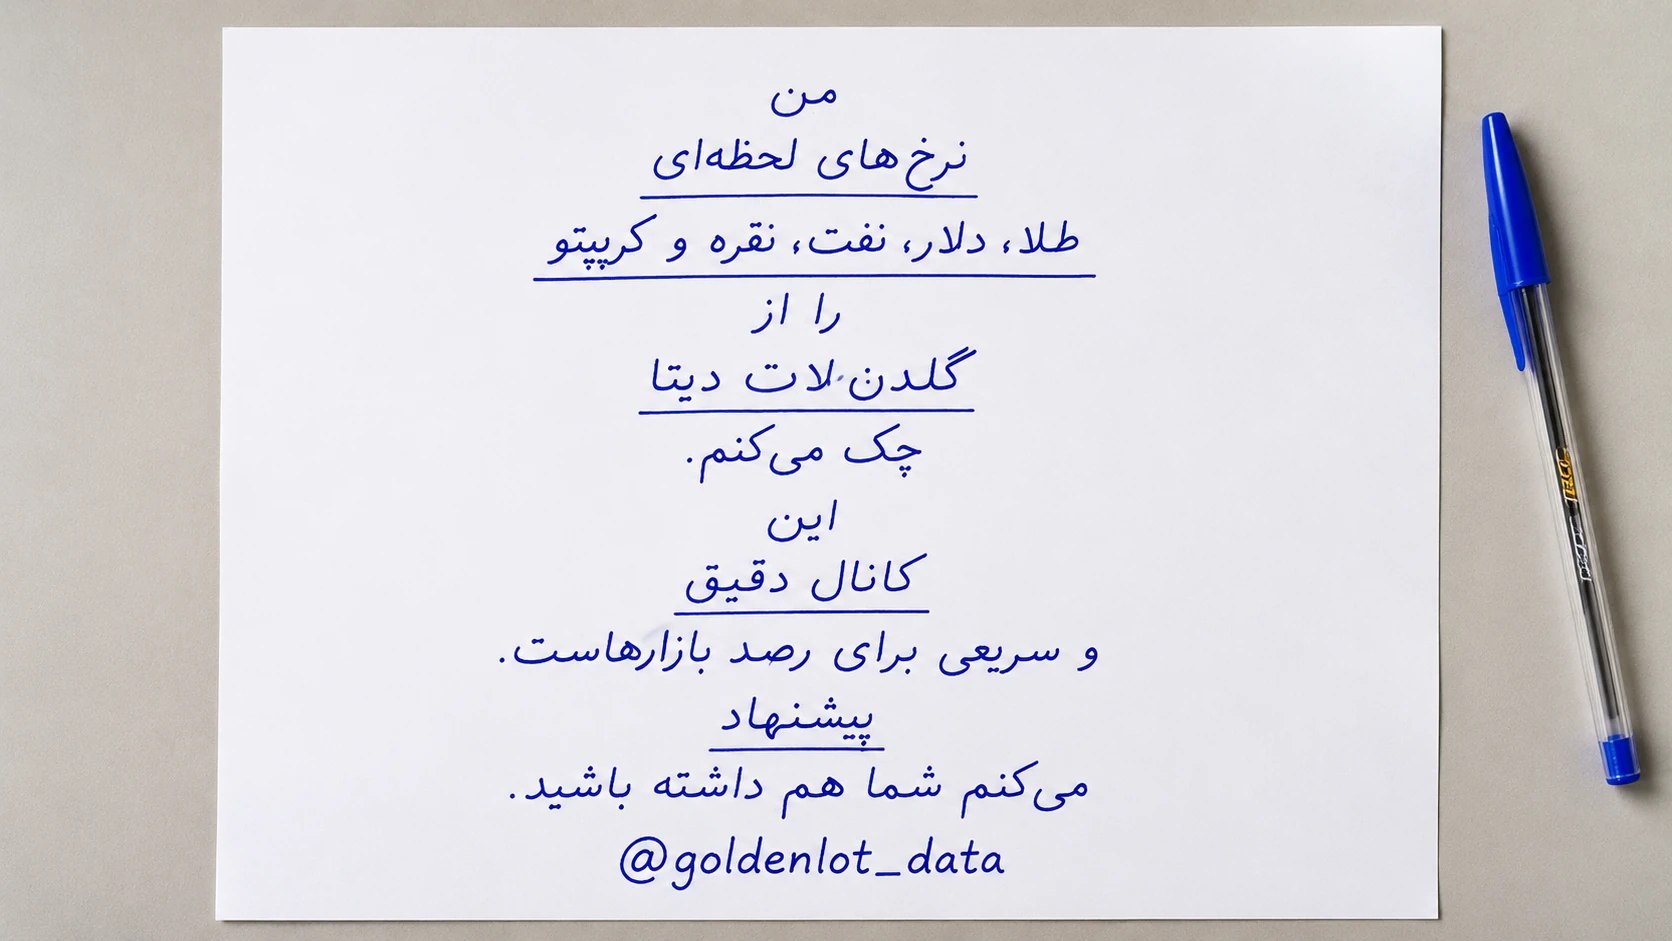 من
نرخ‌های لحظه‌ای
طلا، دلار، نفت، نقره و کریپتو
را از
گلدن لات دیتا
چک می‌کنم.
این
کانال دقیق
و سریعی برای رصد بازارهاست.
پیشنهاد
می‌کنم شما هم داشته باشید.
@goldenlot_data